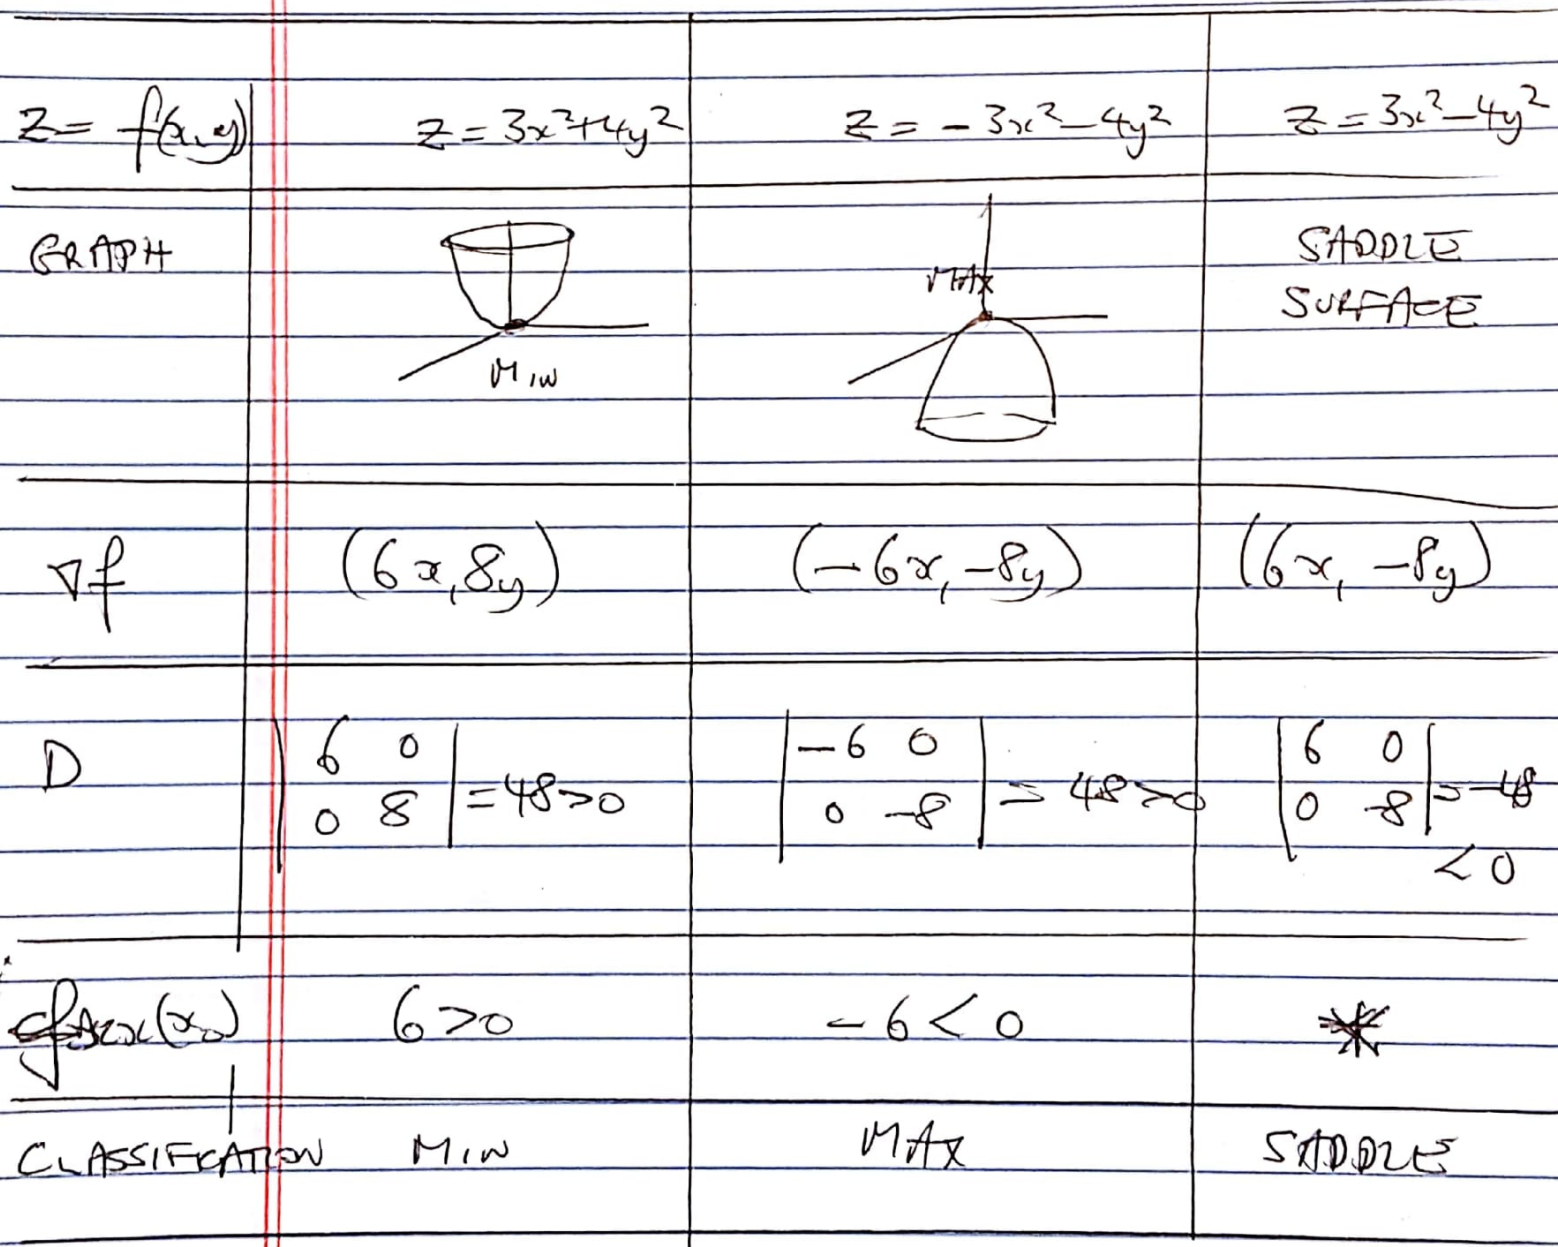 z = f(x,y) z = 3x²+4y² z = -3x²-4y² z = 3x²-4y²
GRAPH MIN MAX SADDLE SURFACE
∇f (6x, 8y) (-6x, -8y) (6x, -8y)
D |6 0; 0 8| = 48>0 |-6 0; 0 -8| = 48>0 |6 0; 0 -8| = -48 <0
fxx(x₀) 6>0 -6<0 *
CLASSIFICATION MIN MAX SADDLE